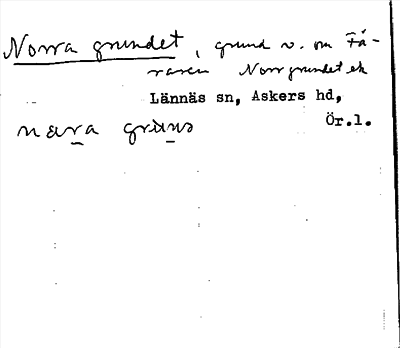 Norra grundet, grund v. om Få-
raren Norrgrundet ek
Lännäs sn, Askers hd,
nara Ör.l.